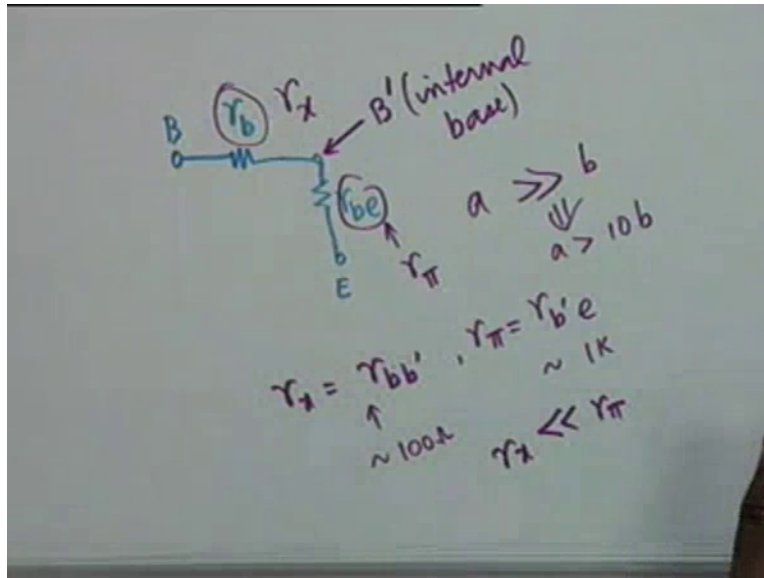 B
r_b r_x
B' (internal
base)
r_be
r_π
E
a >> b
⇓
a > 10b
r_x = r_bb' , r_π = r_b'e
↑
~100Ω
~ 1K
r_x << r_π